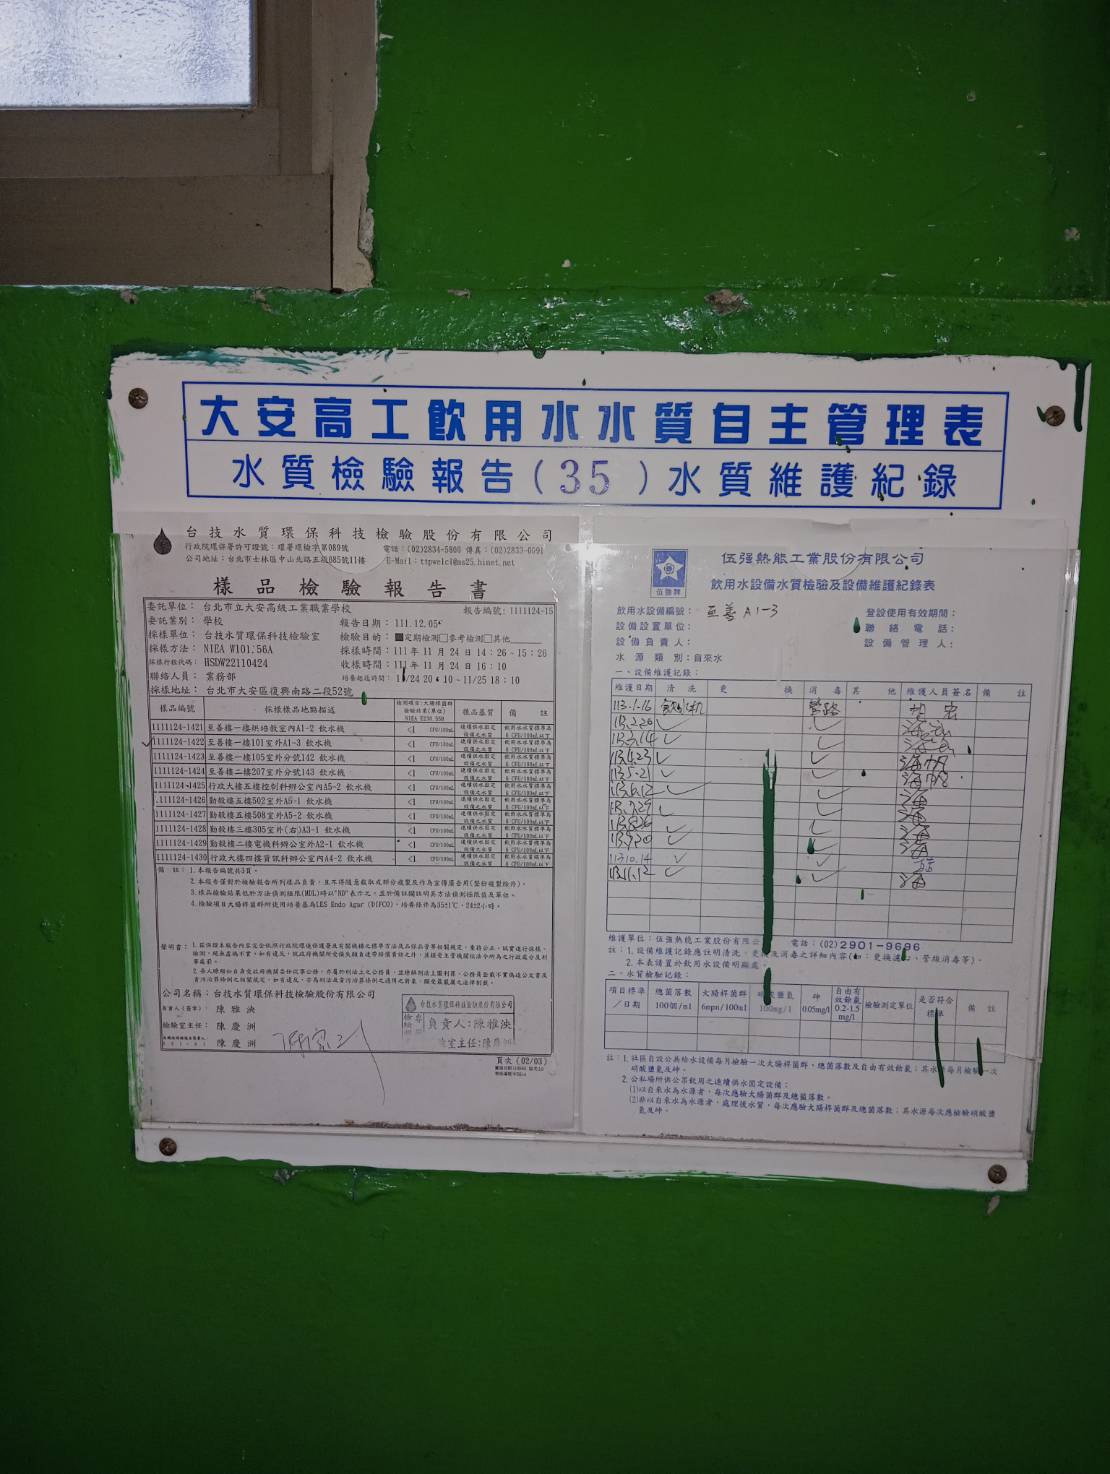 大安高工飲用水水質自主管理表
水質檢驗報告(35)水質維護紀錄
台技水質環保科技檢驗股份有限公司
行政院環保署許可證號：環署環檢字第089號 電話：(02)2834-5800 傳真：(02)2833-0591
公司地址：台北市士林區中山北路五段685號11樓
樣品檢驗報告書
委託單位： 台北市立大安高級工業職業學校 報告編號：1111124-15
委託業別： 學校 報告日期：111.12.05
採樣單位： 台技水質環保科技檢驗室 檢驗目的：■定期檢測□參考檢測□其他
採樣方法： NIEA W101.56A 採樣時間：111 年 11 月 24 日 14：26 ~ 15：26
採樣行程代碼： HSDW22110424 收樣時間：111 年 11 月 24 日 16：10
聯絡人員： 業務部
採樣地址： 台北市大安區復興南路二段52號
樣品編號 採樣樣品地點描述 樣品基質 備 註
1111124-1421 至善樓一樓烘培教室內A1-2 飲水機 <1
1111124-1422 至善樓一樓101室外A1-3 飲水機 <1
1111124-1423 至善樓一樓105室外分號142 飲水機 <1
1111124-1424 至善樓二樓207室外分號143 飲水機 <1
1111124-1425 行政大樓五樓控制科辦公室內A5-2 飲水機 <1
1111124-1426 勤毅樓五樓502室外A5-1 飲水機 <1
1111124-1427 勤毅樓五樓508室外A5-2 飲水機 <1
1111124-1428 勤毅樓三樓305室外(右)A3-1 飲水機 <1
1111124-1429 勤毅樓二樓電機科辦公室外A2-1 飲水機 <1
1111124-1430 行政大樓四樓資訊科辦公室內A4-2 飲水機 <1
備 註：1.本報告編號共3頁。
2.本報告僅對於檢驗報告所列樣品負責，且不得隨意截取或部份複製及作為宣傳廣告用(整份複製除外)。
3.樣品檢驗結果低於方法偵測極限(MDL)時以"ND"表示之，並於備註欄註明其方法偵測極限值及單位。
4.檢驗項目大腸桿菌群所使用培養基為LES Endo Agar (DIFCO)，培養條件為35±1℃，24±2小時。
聲明書：
公司名稱：台技水質環保科技檢驗股份有限公司
陳雅泱
檢驗室主任： 陳慶洲
陳慶洲
台技水質環保科技檢驗股份有限公司
負責人：陳雅泱
頁次 (02/03)
伍強牌
伍强熱能工業股份有限公司
飲用水設備水質檢驗及設備維護紀錄表
飲用水設備編號： 至善 A1-3 登設使用有效期間：
設備設置單位： 聯絡電話：
設備負責人： 設備管理人：
水源類別：自來水
一、設備維護記錄：
維護日期 清洗 更換 消毒 其他 維護人員簽名 備註
113.1.16 管路
113.2.20
113.3.14
113.4.23
113.5.21
113.6.12
113.7.29
113.8.26
113.9.20
113.10.14
113.11.12
維護單位：伍强熱能工業股份有限公 電話：(02)2901-9696
註：1.設備維護記錄應註明清洗、更換及消毒之詳細內容(如：更換濾心、管線消毒等)。
2.本表請置於飲用水設備明顯處。
二、水質檢驗記錄：
項目標準／日期 總菌落數 100個/ml 大腸桿菌群 6mpn/100ml 硝酸鹽氮 100mg/l 砷 0.05mg/l 自由有效餘氯 0.2-1.5 mg/l 檢驗測定單位 是否符合標準 備註
註：1.社區自設公共給水設備每月檢驗一次大腸桿菌群、總菌落數及自由有效餘氯；其水源每月檢驗一次
硝酸鹽氮及砷。
2.公私場所供公眾飲用之連續供水固定設備：
(1)以自來水為水源者，每次應驗大腸桿菌群及總菌落數。
(2)非以自來水為水源者，處理後水質，每次應驗大腸桿菌群及總菌落數；其水源每次應檢驗硝酸鹽
氮及砷。